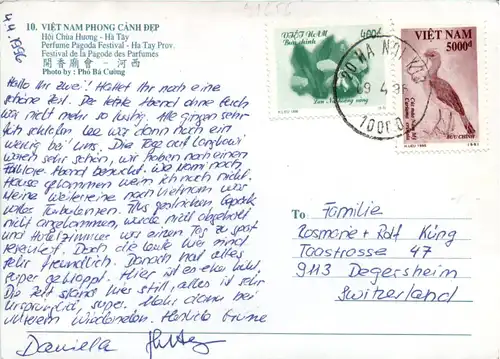 10. VIỆT NAM PHONG CẢNH ĐẸP
Hội Chùa Hương - Hà Tây
Perfume Pagoda Festival - Hà Tay Prov.
Festival de la Pagode des Parfumés
開香廟會 - 河西
Photo by : Phó Bá Cường
4.4.1996
Hallo Ihr zwei! Hattet Ihr noch eine
schöne Zeit. Der letzte Abend ohne Euch
war nicht mehr so lustig. Alle gingen sehr
früh schlafen. war dann noch ein
wenig bei uns. Die Tage auf Langkawi
waren sehr schön, wir haben noch einen
Folklore Abend besucht. wo noch
Hause gekommen weiss ich noch nicht.
Meine weiterreise nach Vietnam war
voller Turbulenzen. Das Gepäck
nicht angekommen, wurde nicht abgeholt
und Hotelzimmer war einen Tag zu spät
reserviert. Doch die Leute hier sind
sehr freundlich. Danach hat alles
super geklappt. Hier ist es eher kühl,
Die Zeit stand hier still, alles ist sehr
ursprünglich, super. Mehr dann bei
unserem Wiedersehen. Herzliche Grüsse
Daniela
VIỆT NAM
Bưu chính
400đ
VIỆT NAM
5000đ
BƯU CHÍNH
1991
HA NOI
9 4 96
10000
To
Familie
Rosmarie + Ralf Küng
Taastrasse 47
9113 Degersheim
Switzerland